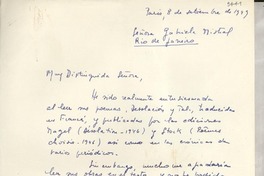 Paris, 8 de setiembre de 1949
Señora Gabriela Mistral
Rio de Janeiro
Muy Distinguida Señora,
He sido realmente entusiasmado
al leer sus poemas, Desolación y Tala, traducidos
en Francés, y publicados por las ediciones
Nagel (Desolation - 1946) y Stock (Poèmes
choisis - 1946) así como en las crónicas de
varios periódicos.
Sin embargo, mucho me agradaría
leer sus obras en el texto, y me he